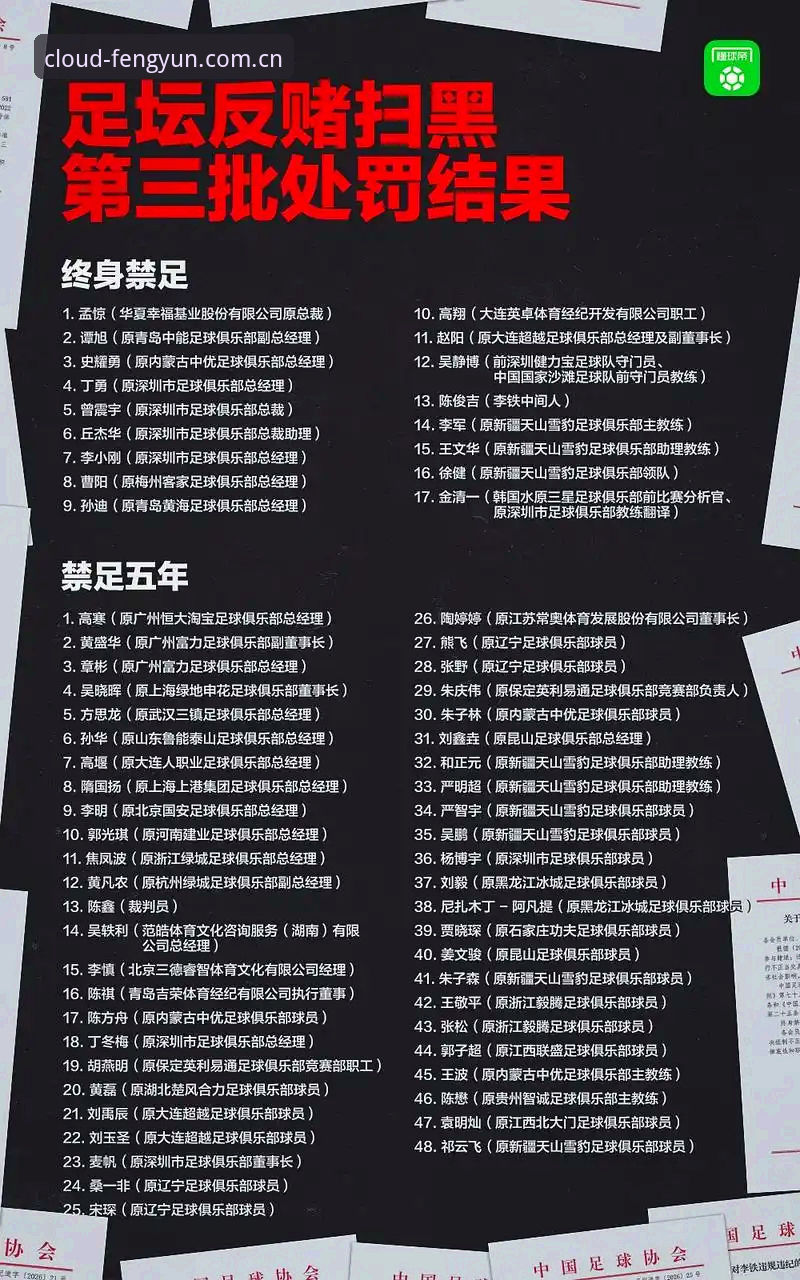 cloud-fengyun.com.cn
懂球帝
足坛反赌扫黑
第三批处罚结果
终身禁足
1. 孟惊（华夏幸福基业股份有限公司原总裁）
2. 谭旭（原青岛中能足球俱乐部副总经理）
3. 史耀勇（原内蒙古中优足球俱乐部总经理）
4. 丁勇（原深圳市足球俱乐部总经理）
5. 曾震宇（原深圳市足球俱乐部总裁）
6. 丘杰华（原深圳市足球俱乐部总裁助理）
7. 李小刚（原深圳市足球俱乐部总经理）
8. 曹阳（原梅州客家足球俱乐部总经理）
9. 孙迪（原青岛黄海足球俱乐部总经理）
10. 高翔（大连英卓体育经纪开发有限公司职工）
11. 赵阳（原大连超越足球俱乐部总经理及副董事长）
12. 吴静博（前深圳健力宝足球队守门员、
中国国家沙滩足球队前守门员教练）
13. 陈俊吉（李铁中间人）
14. 李军（原新疆天山雪豹足球俱乐部主教练）
15. 王文华（原新疆天山雪豹足球俱乐部助理教练）
16. 徐健（原新疆天山雪豹足球俱乐部领队）
17. 金清一（韩国水原三星足球俱乐部前比赛分析官、
原深圳市足球俱乐部教练翻译）
禁足五年
1. 高寒（原广州恒大淘宝足球俱乐部总经理）
2. 黄盛华（原广州富力足球俱乐部副董事长）
3. 章彬（原广州富力足球俱乐部总经理）
4. 吴晓晖（原上海绿地申花足球俱乐部董事长）
5. 方思龙（原武汉三镇足球俱乐部总经理）
6. 孙华（原山东鲁能泰山足球俱乐部总经理）
7. 高堰（原大连人职业足球俱乐部总经理）
8. 隋国扬（原上海上港集团足球俱乐部总经理）
9. 李明（原北京国安足球俱乐部总经理）
10. 郭光琪（原河南建业足球俱乐部总经理）
11. 焦凤波（原浙江绿城足球俱乐部总经理）
12. 黄凡农（原杭州绿城足球俱乐部副总经理）
13. 陈鑫（裁判员）
14. 吴轶利（范皓体育文化咨询服务（湖南）有限
公司总经理）
15. 李慎（北京三德睿智体育文化有限公司经理）
16. 陈祺（青岛吉荣体育经纪有限公司执行董事）
17. 陈方舟（原内蒙古中优足球俱乐部球员）
18. 丁冬梅（原深圳市足球俱乐部总经理）
19. 胡燕明（原保定英利易通足球俱乐部竞赛部职工）
20. 黄磊（原湖北楚风合力足球俱乐部球员）
21. 刘禹辰（原大连超越足球俱乐部球员）
22. 刘玉圣（原大连超越足球俱乐部球员）
23. 麦帆（原深圳市足球俱乐部董事长）
24. 桑一非（原辽宁足球俱乐部球员）
25. 宋琛（原辽宁足球俱乐部球员）
26. 陶婷婷（原江苏常奥体育发展股份有限公司董事长）
27. 熊飞（原辽宁足球俱乐部球员）
28. 张野（原辽宁足球俱乐部球员）
29. 朱庆伟（原保定英利易通足球俱乐部竞赛部负责人）
30. 朱子林（原内蒙古中优足球俱乐部球员）
31. 刘鑫垚（原昆山足球俱乐部总经理）
32. 和正元（原新疆天山雪豹足球俱乐部助理教练）
33. 严明超（原新疆天山雪豹足球俱乐部助理教练）
34. 严智宇（原新疆天山雪豹足球俱乐部球员）
35. 吴鹏（原新疆天山雪豹足球俱乐部球员）
36. 杨博宇（原深圳市足球俱乐部球员）
37. 刘毅（原黑龙江冰城足球俱乐部球员）
38. 尼扎木丁 – 阿凡提（原黑龙江冰城足球俱乐部球员）
39. 贾晓琛（原石家庄功夫足球俱乐部球员）
40. 姜文骏（原昆山足球俱乐部球员）
41. 朱子森（原新疆天山雪豹足球俱乐部球员）
42. 王敬平（原浙江毅腾足球俱乐部球员）
43. 张松（原浙江毅腾足球俱乐部球员）
44. 郭子超（原江西联盛足球俱乐部球员）
45. 王波（原内蒙古中优足球俱乐部主教练）
46. 陈懋（原贵州智诚足球俱乐部主教练）
47. 袁明灿（原江西北大门足球俱乐部球员）
48. 祁云飞（原新疆天山雪豹足球俱乐部球员）
协 会
中 国 足 球 协
国 足 球
对李铁违规违纪的